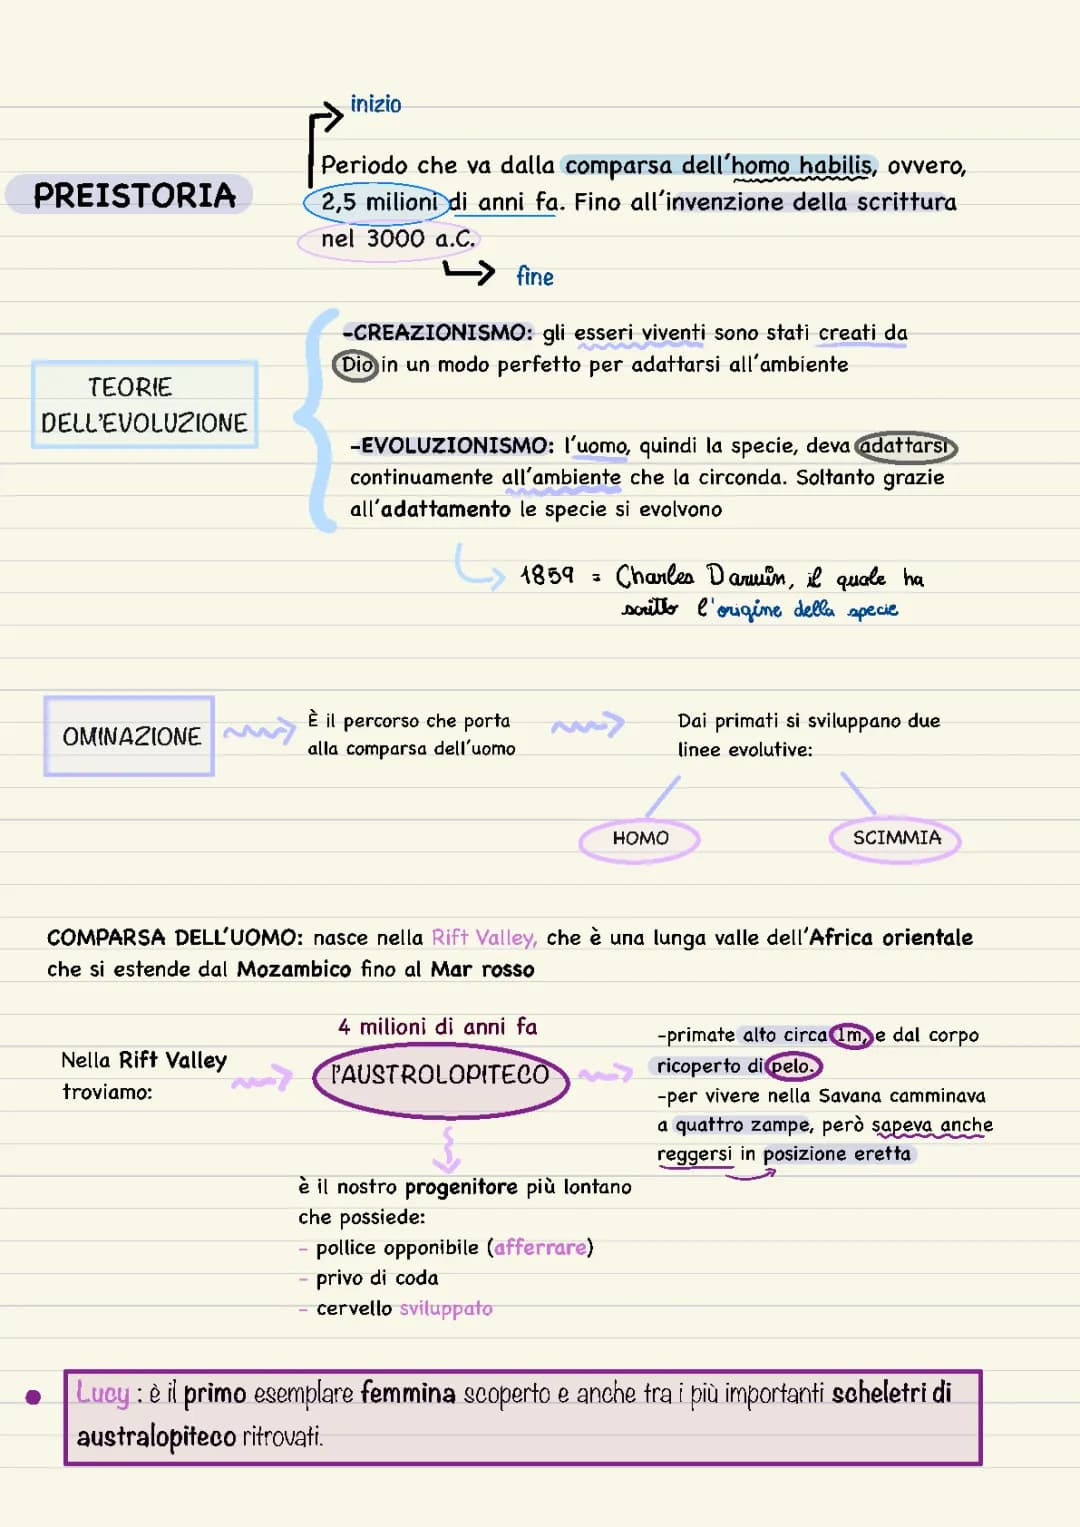 inizio
PREISTORIA
Periodo che va dalla comparsa dell'homo habilis, ovvero,
2,5 milioni di anni fa. Fino all'invenzione della scrittura
nel 3000 a.C.
fine
TEORIE
DELL'EVOLUZIONE
-CREAZIONISMO: gli esseri viventi sono stati creati da
Dio in un modo perfetto per adattarsi all'ambiente
-EVOLUZIONISMO: l'uomo, quindi la specie, deva adattarsi
continuamente all'ambiente che la circonda. Soltanto grazie
all'adattamento le specie si evolvono
1859 = Charles Darwin, il quale ha
scritto l'origine della specie
OMINAZIONE
È il percorso che porta
alla comparsa dell'uomo
Dai primati si sviluppano due
linee evolutive:
HOMO
SCIMMIA
COMPARSA DELL'UOMO: nasce nella Rift Valley, che è una lunga valle dell'Africa orientale
che si estende dal Mozambico fino al Mar rosso
Nella Rift Valley
troviamo:
4 milioni di anni fa
l'AUSTROLOPITECO
-primate alto circa 1m, e dal corpo
ricoperto di pelo.
-per vivere nella Savana camminava
a quattro zampe, però sapeva anche
reggersi in posizione eretta
è il nostro progenitore più lontano
che possiede:
- pollice opponibile (afferrare)
- privo di coda
- cervello sviluppato
Lucy : è il primo esemplare femmina scoperto e anche tra i più importanti scheletri di
australopiteco ritrovati.